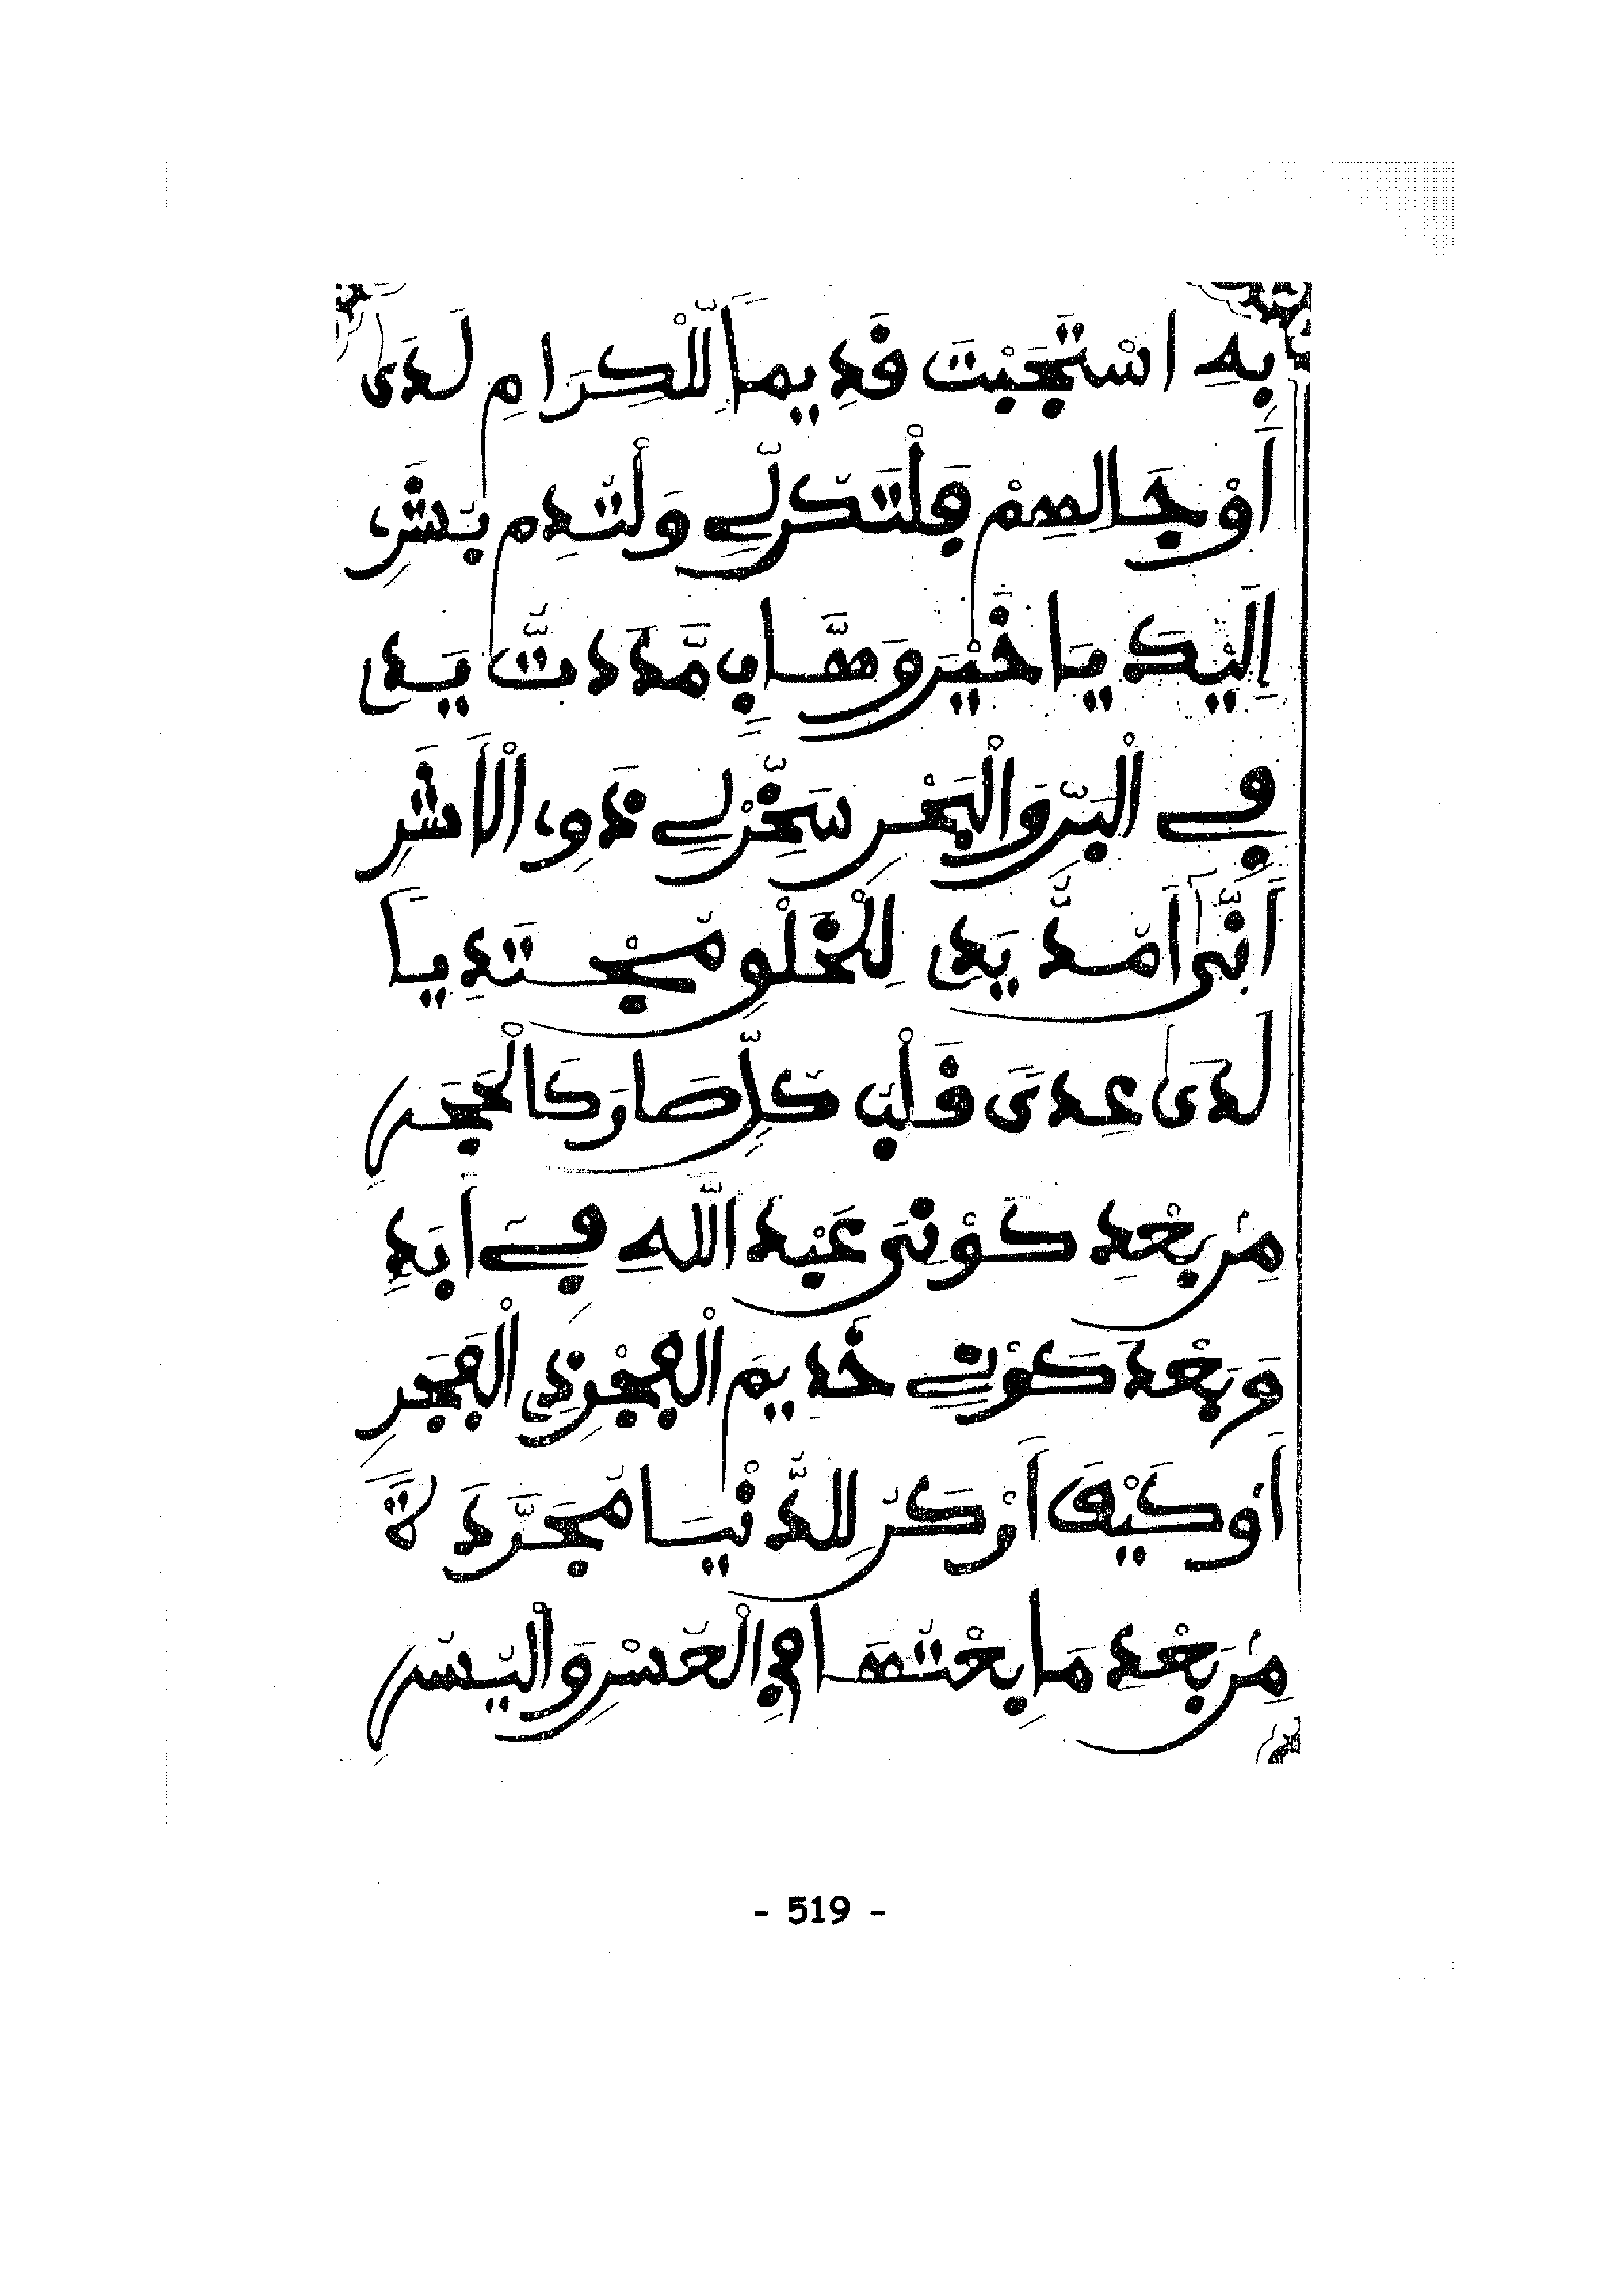 بِهِ اسْتَجَبْتَ قَدِيماً لِلْكِرَامِ لَدَى
أَوْجَالِهِمْ فَلْتَكُن لِّي وَلْتُدِم بَشَرِي
إِلَيْكَ يَا خَيْرَ وَهَّابٍ مَدَدتُّ يَدِي
فِي الْبَرِّ وَالْبَحْرِ سَخِّرْ لِي ذَوِي الْأَشَرِ
أَنَّى أَمُدُّ يَدِي لِلْخَلْقِ مُجْتَدِياً
لَدَى عِدىً قَلْبُ كُلٍّ صَارَ كَالْحَجَرِ
مِن بَعْدِ كَوْنِيَ عَبْدَ اللَّهِ فِي أَبَدِ
وَبَعْدَ كَوْنِي خَدِيمَ الْفَجْرِ ذِي الْفَجَرِ
أَوْ كَيْفَ أَرْكَنُ لِلدُّنْيَا مُجَرَّدَةً
مِن بَعْدِ مَا بِعْتُهَا فِي الْعُسْرِ وَالْيُسُرِ
- 519 -